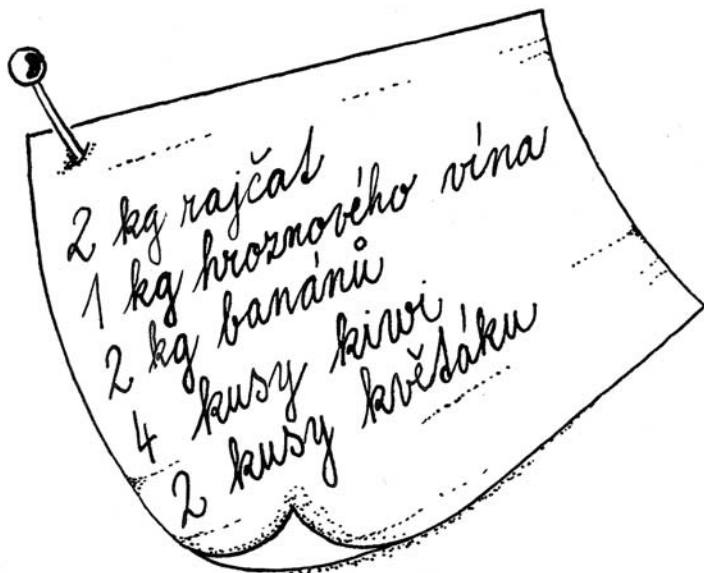 2 kg rajčat
1 kg hroznového vína
2 kg banánů
4 kusy kiwi
2 kusy květáku